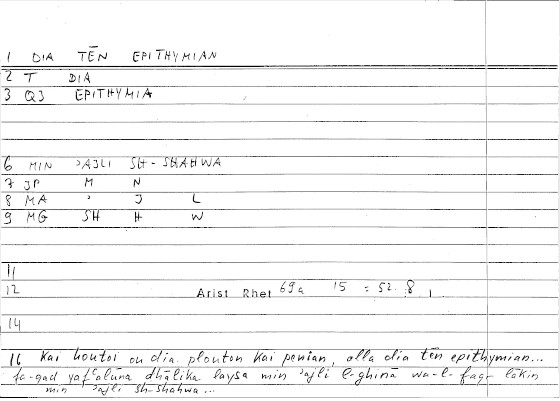 1 DIA TĒN EPITHYMIAN
2 T DIA
3 QJ EPITHYMIA
6 MIN ʾAJLI SH-SHAHWA
7 JP M N
8 MA ʾ J L
9 MG SH H W
11
12 Arist Rhet 69a 15 : 52. 8
14
16 kai houtoi ou dia plouton kai penian, alla dia tēn epithymian...
fa-qad yafʿalūna dhālika laysa min ʾajli l-ghinā wa-l-faqr lākin
min ʾajli sh-shahwa...